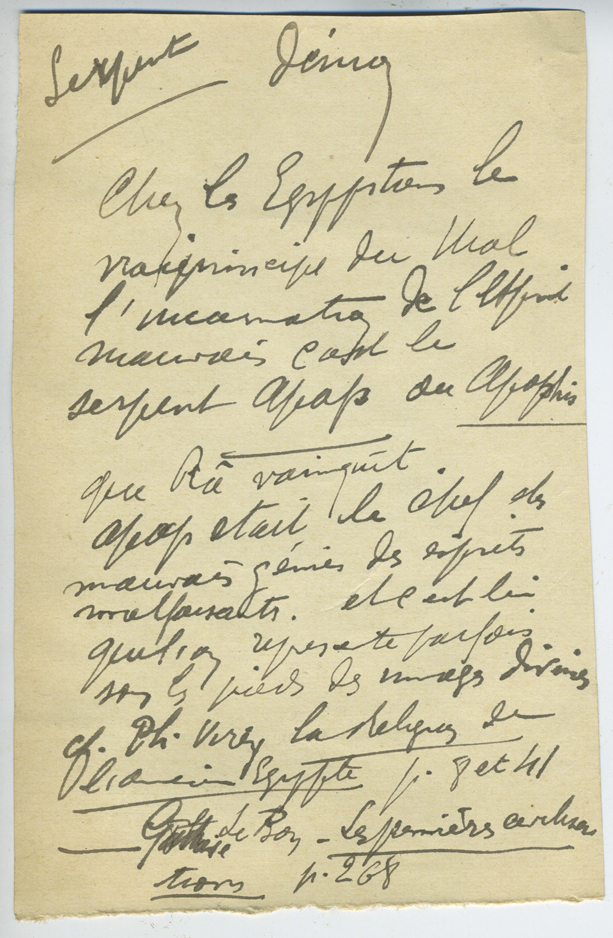 Serpent Démon
Chez les Egyptiens le
vrai principe du Mal
l'incarnation de l'Esprit
mauvais c'est le
serpent Apap ou Apophis
que Râ vainquit
Apap etait le chef des
mauvais génies des esprits
malfaisants. et c'est lui
que l'on represente parfois
sous les pieds des images divines
cf. Ph. Virey la Religion de
l'ancienne Egypte p. 8 et 41
Gustave Le Bon - Les premières civilisa
tions p. 268